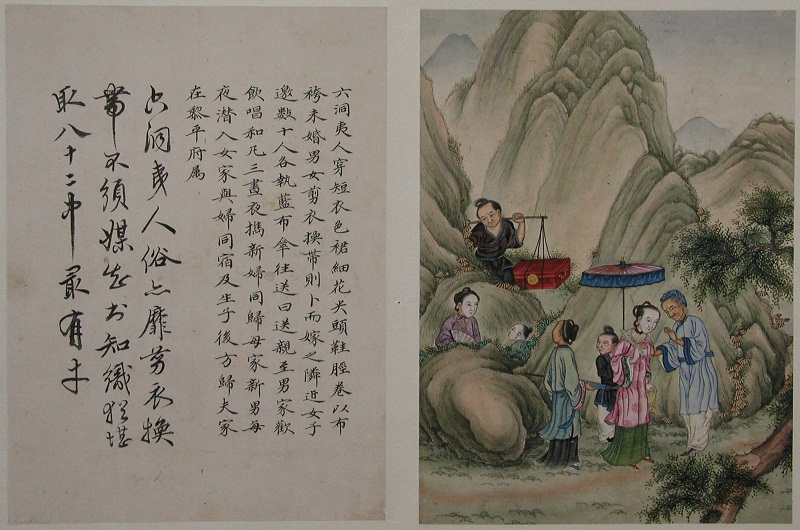 六洞夷人穿短衣色裙細花尖頭鞋脛卷以布
袴未婚男女剪衣換帶則卜而嫁之隣近女子
邀數十人各執藍布傘往送曰送親至男家歡
飲唱和凡三晝夜擕新婦同歸母家新男每
夜潛入女家與婦同宿及生子後方歸夫家
在黎平府屬
六洞夷人俗亦靡剪衣換
帶不須媒知織猶堪
取八十二中最有才